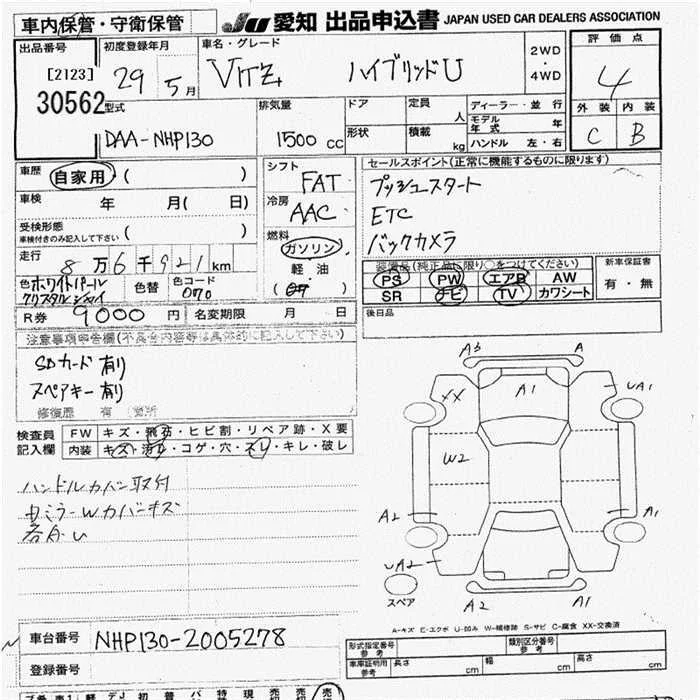 車内保管・守衛保管
JU 愛知 出品申込書 JAPAN USED CAR DEALERS ASSOCIATION
出品番号
[2123]
30562
初度登録年月
29年5月
車名・グレード
VITZ ハイブリッドU
2WD
・
4WD
評価点
4
外装 内装
C B
型式
DAA-NHP130
排気量
1500cc
ドア
形状
定員 人
積載 kg
ディーラー・並行
モデル年式 年
ハンドル 左・右
車歴 自家用 ( )
車検 年 月( 日)
受検形態
車検付きのみ記入して下さい ( )
走行
8万6千921km
色 ホワイトパール
クリスタルシャイ
色替
色コード
070
R券 9000円
名変期限 月 日
シフト
FAT
冷房
AAC
燃料
ガソリン
軽油
セールスポイント(正常に機能するものに限ります)
プッシュスタート
ETC
バックカメラ
装備品(純正品に限り○をつけてください)
PS PW エアB AW
SR ナビ TV カワシート
新車保証書
有・無
後日品
注意事項申告欄(不具合内容等は具体的に記入して下さい)
SDカード 有り
スペアキー 有り
修復歴 有
検査員記入欄
FW キズ・飛石・ヒビ割・リペア跡・X要
内装 キズ・汚れ・コゲ・穴・スレ・キレ・破レ
ハンドルカバー取付
A3 A
XX
A1
UA1
W2
A2
A1
UA2
スペア
A2 A1
A-キズ E-エクボ U-凹み W-補修跡 S-サビ C-腐食 XX-交換済
車台番号 NHP130-2005278
登録番号
形式指定番号
参考
類別区分番号
参考
車庫証明用
参考
長さ cm
幅 cm
高さ cm